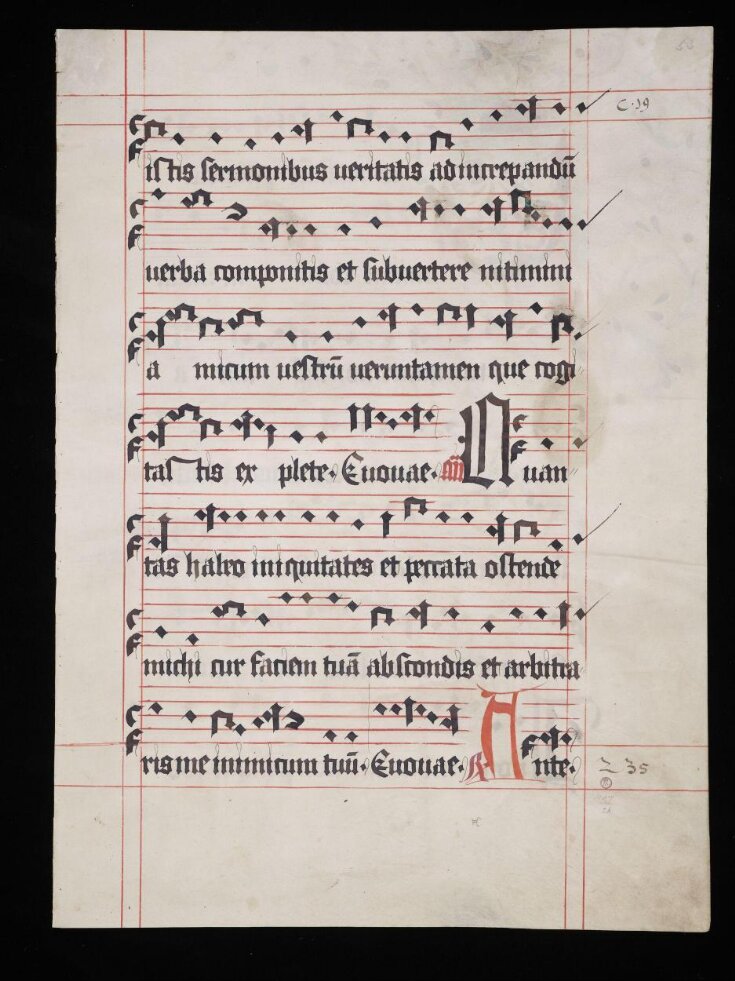 istis sermonibus veritatis ad increpandū
verba componitis et subvertere nitimini
a micum vestrū veruntamen que cogi
tas tis ex plete. Euouae. Quan
tas habeo iniquitates et peccata ostende
michi cur faciem tuā abscondis et arbitra
ris me inimicum tuū. Euouae. Ante.
35